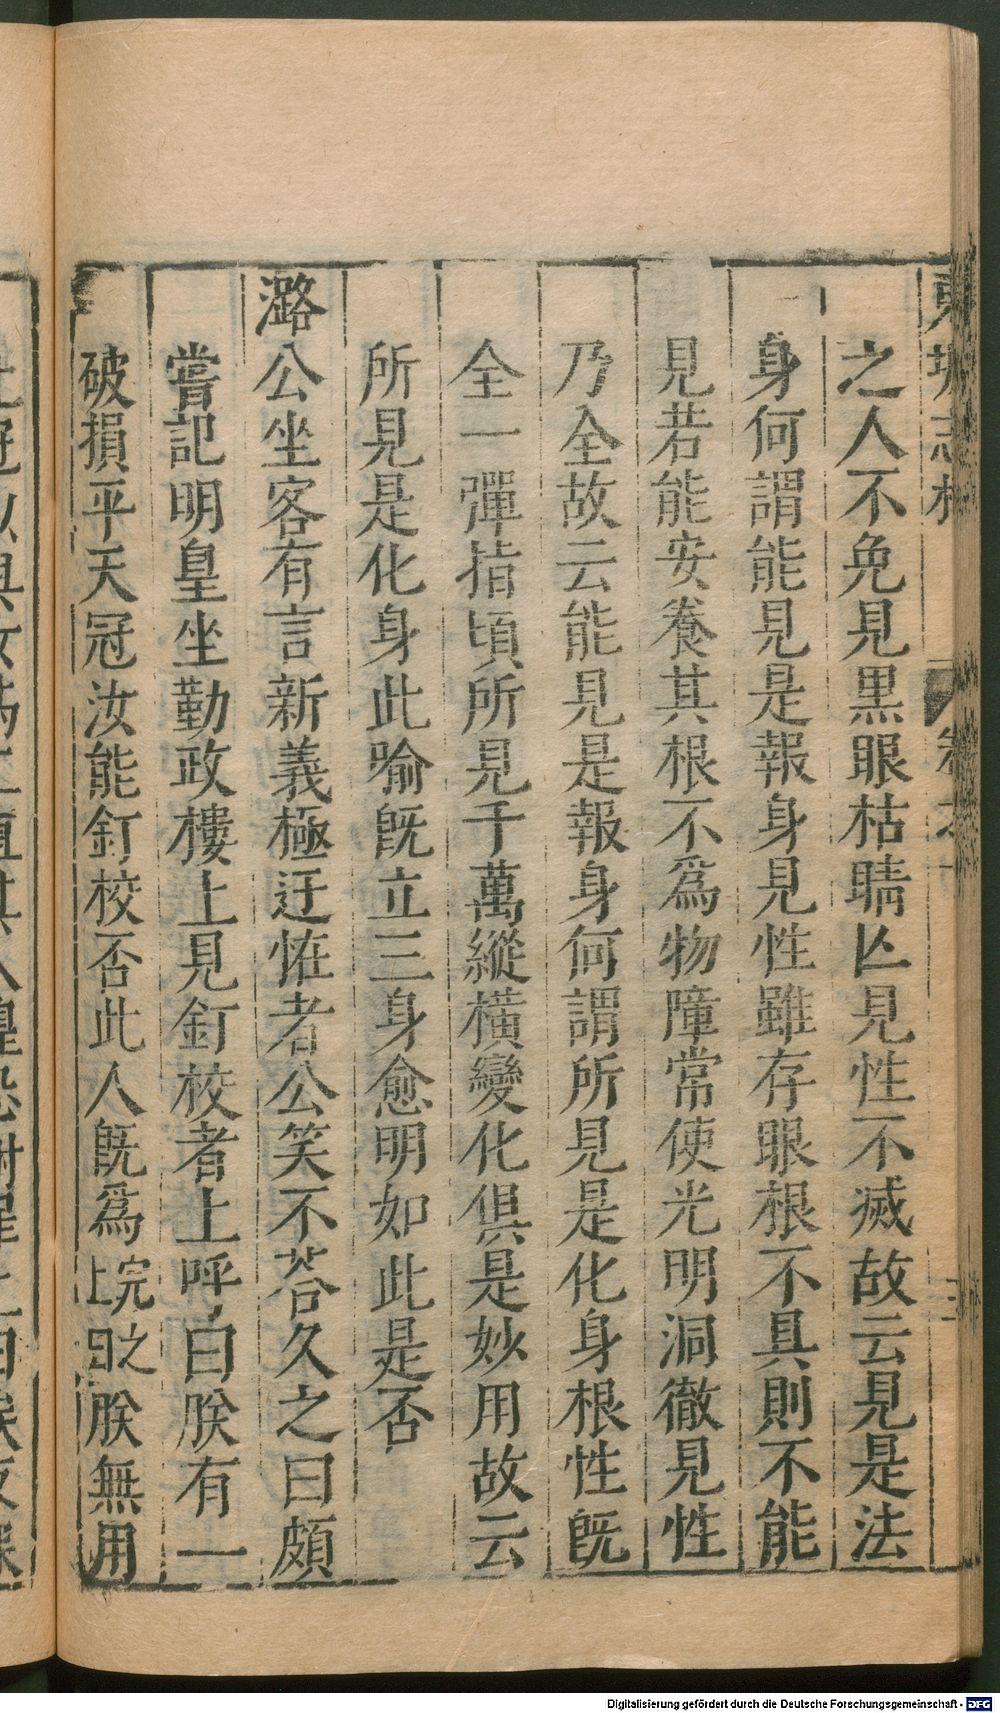 東坡志林
卷之
之人不免見黒眼枯睛亾見性不滅故云見是法
身何謂能見是報身見性雖存眼根不具則不能
見若能安養其根不爲物障常使光明洞徹見性
乃全故云能見是報身何謂所見是化身根性旣
全一彈指頃所見千萬縱橫變化俱是妙用故云
所見是化身此喻旣立三身愈明如此是否
潞公坐客有言新義極迂恠者公笑不荅久之曰頗
嘗記明皇坐勤政樓上見釘校者上呼曰朕有一
破損平天冠汝能釘校否此人旣爲完之上曰朕無用
Digitalisierung gefördert durch die Deutsche Forschungsgemeinschaft - DFG